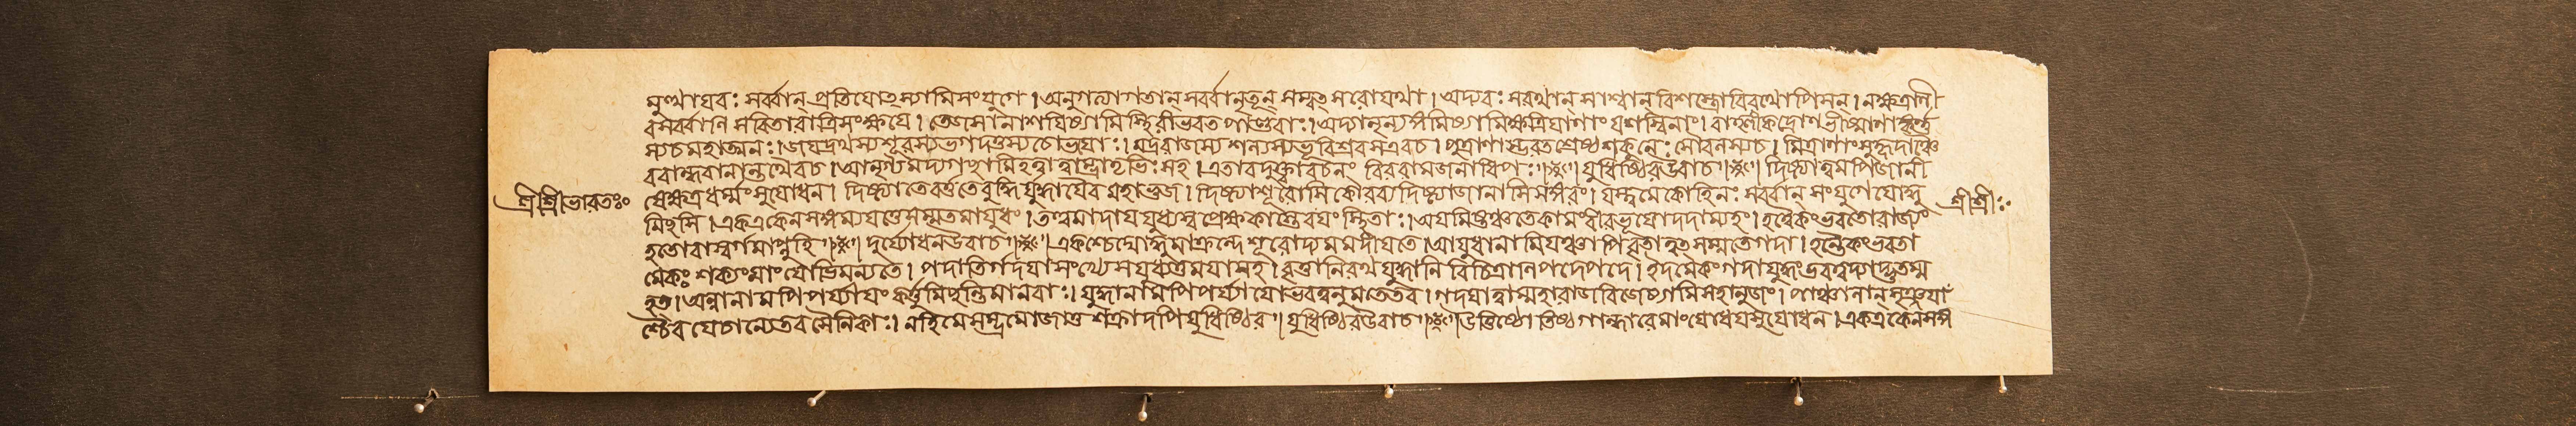 মুত্থাযবঃ সর্ব্বান্ প্রতিযোৎস্যামি সংযুগে । অনুগত্যাগতান্ সর্ব্বানৃতূন্ সম্বৎসরোযথা । অদ্যবঃ সরথান্ সাশ্বান্ বিশস্ত্রোবিরথোপিসন্ । নক্ষত্রাণী
বসর্ব্বাণি সবিতারাত্রিসংক্ষযে । তেজসানাশযিষ্যামি স্থিরীভবত পাণ্ডবাঃ । অদ্যানৃন্যঙ্গমিষ্যামি ক্ষত্রিযাণাং যশস্বিনাং । বাহ্লীকদ্রোণ ভীষ্মাণাঙ্কর্ণ
স্যচমহাত্মনঃ । জযদ্রথস্য শূরস্য ভগদত্তস্য চোভযোঃ । মদ্ররাজস্য শল্যস্য ভূরিশ্রবস এবচ । পুত্রাণাম্ভরতশ্রেষ্ঠ শকুনেঃ সৌবলস্যচ । মিত্রাণাং সুহৃদাঞ্চৈ
ববান্ধবানান্তথৈবচ । আনৃণ্যমদ্যগচ্ছামি হত্বাত্বাম্ভ্রাতৃভিঃ সহ । এতাবদুক্ত্বাবচনং বিররামজনাধিপঃ । যুধিষ্ঠিরউবাচ । দিষ্ট্যাত্বমপিজানী
ষেক্ষত্রধর্ম্মংসুযোধন । দিষ্ট্যাতেবর্ত্ততেবুদ্ধির্যুদ্ধাযৈব মহাভুজ । দিষ্ট্যাশূরোসি কৌরব্যদিষ্ট্যাজানাসিসঙ্গরং । যস্ত্বমেকোহিনঃ সর্ব্বান্ সংযুগেযোদ্ধু
শ্রীশ্রীভারতঃ
শ্রীশ্রীঃ
মিচ্ছসি । একএকেনসঙ্গম্যযত্তেসম্মতমাযুধং । তত্ত্বমাদাযযুধ্যস্ব প্রেক্ষকাস্তেবযংস্থিতাঃ । অযমিষ্টঞ্চতেকামংবীরভূযোদদাম্যহং । হত্বৈকংভবতোরাজ্যং
হতোবাস্বর্গমাপ্নুহি । দুর্য্যোধনউবাচ । একশ্চেদ্যোদ্ধুমাক্রন্দে শূরোদ্যমমদীযতে । আযুধানামিযঞ্চাপিবৃতাত্বৎসম্মতেগদা । হন্তৈকংভবতা
মেকঃ শক্যংমাংযোভিমন্যতে । পদাতির্গদযাসংখ্যেসযুধ্যতুমযাসহ । বৃত্তানিরথযুদ্ধানি বিচিত্রাণিপদেপদে । ইদমেকংগদাযুদ্ধংভবত্বদ্যাদ্ভুতম্ম
হৎ । অন্নানামপিপর্য্যাযংকর্ত্তুমিচ্ছন্তিমানবাঃ । যুদ্ধানামপিপর্য্যাযোভবত্বনুমতেতব । গদযাত্বাম্মহারাজবিজেষ্যামিসহানুজং । পাঞ্চালান্ সৃঞ্জযাঁ
শ্চৈব যেচান্যেতব সৈনিকাঃ । নহিমেসম্ভ্রমোজাতু শক্রাদপিযুধিষ্ঠির । যুধিষ্ঠিরউবাচ । উত্তিষ্ঠোত্তিষ্ঠগান্ধারেমাংযোধযসুযোধন । একএকেনসঙ্গ